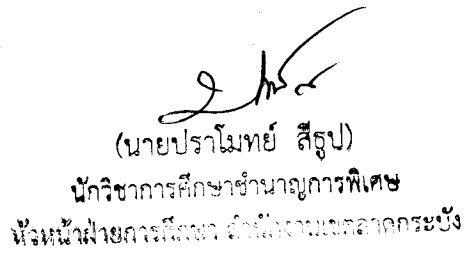 (นายปราโมทย์ สีธูป)
นักวิชาการศึกษาชำนาญการพิเศษ
หัวหน้าฝ่ายการศึกษา สำนักงานเขตลาดกระบัง